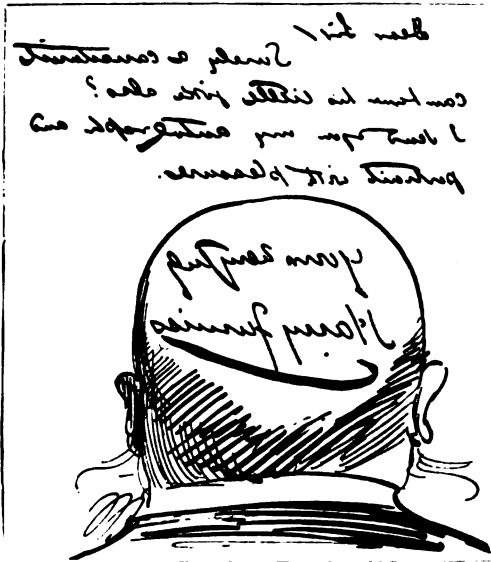 Dear Sir/
Surely a caricaturist
can have his little joke also?
I send you my autograph and
portrait with pleasure.
Yours truly
Harry Furniss